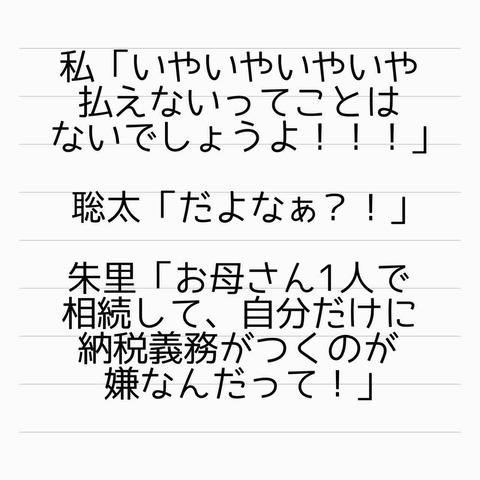 私「いやいやいやいや
払えないってことは
ないでしょうよ！！！」
聡太「だよなぁ？！」
朱里「お母さん1人で
相続して、自分だけに
納税義務がつくのが
嫌なんだって！」